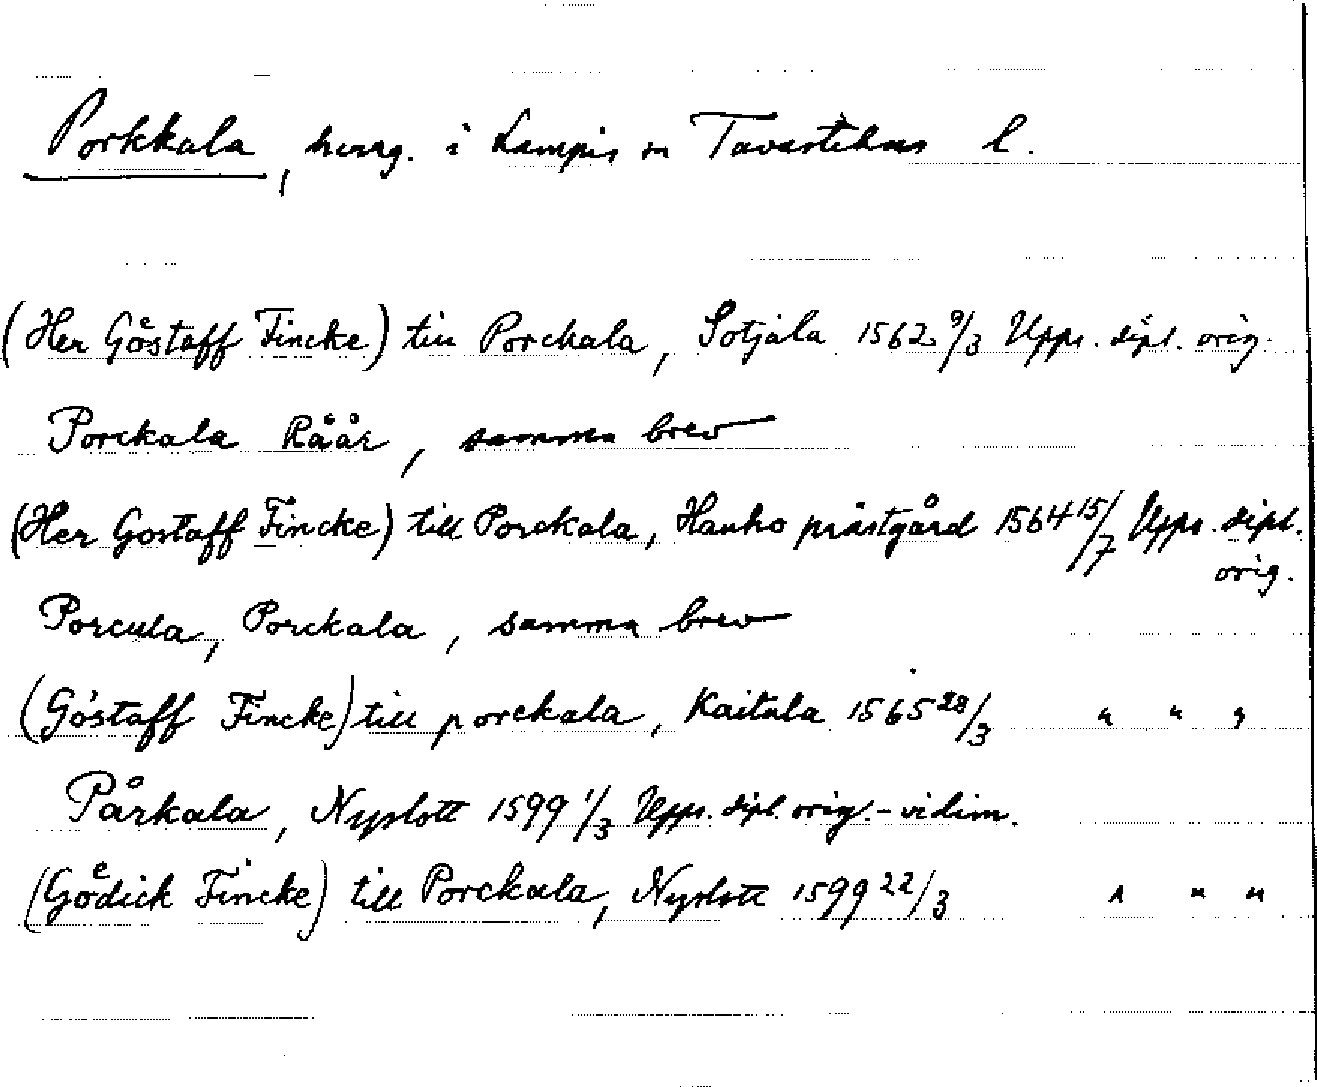 Porkkala, herrg. i Lampis sn Tavastehus l.
(Her Göstaff Fincke) till Porckala, Sotjala 1562 9/3 Upps. dipl. orig.
Porckala Råår, samma brev
(Her Gostaff Fincke) till Porckala, Hauho prästgård 1564 15/7 Upps. dipl.
orig.
Porcula, Porckala, samma brev
(Göstaff Fincke) till porckala, Kaitala 1565 28/3 " " "
Pårkala, Nyslott 1599 1/3 Upps. dipl. orig.-vidim.
(Gödick Fincke) till Porckala, Nyslott 1599 22/3 " " "